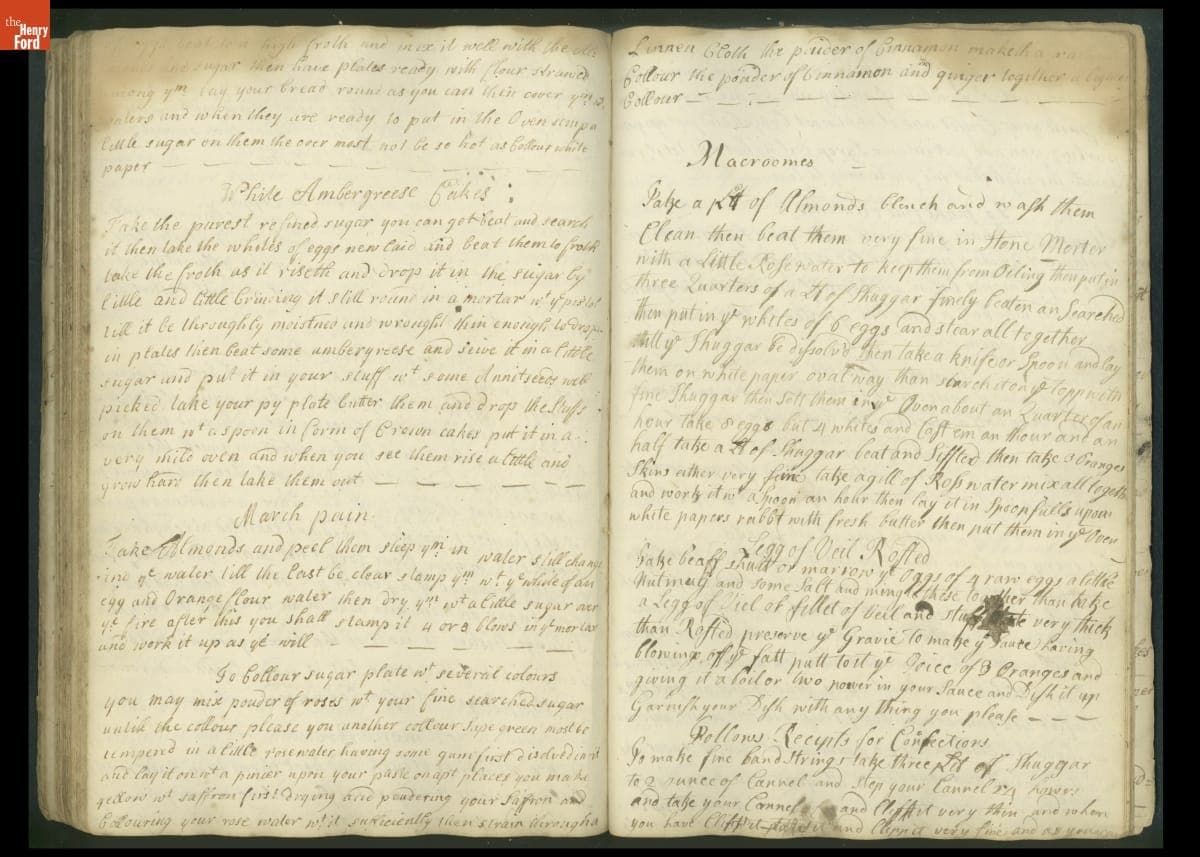 the
Henry
Ford
beat to a high froth and mix it well with the
sugar then have plates ready with flour strawed
among ym lay your bread round as you can then cover ym
wafers and when they are ready to put in the Oven
little sugar on them the over most not be so hot as Collour white
paper
White Ambergreese Cakes:
Take the purest refined sugar you can get beat and search
it then take the whites of eggs new laid and beat them to froth
take the froth as it riseth and drop it in the sugar by
little and little brincing it still round in a mortar wt ye pestel
till it be throughly moistned and wrought thin enough to drop
in plates then beat some ambergreese and seive it in a little
sugar and put it in your stuff wt some Annitseeds well
picked take your py plate butter them and drop the Puffs
on them wt a spoon in form of Crown cakes put it in a
very mild oven and when you see them rise a little and
grow hard then take them out
March pain
Take Almonds and peel them steep ym in water still change
ing ye water till the Last be clear stamp ym wt ye white of an
egg and Orange flour water then dry ym wt a little sugar over
ye fire after this you shall stamp it 4 or 8 blows in ye mortar
and work it up as ye will
To Collour sugar plate wt several colours
you may mix pouder of roses wt your fine searched sugar
untill the collour please you another collour Sape green must be
tempered in a little rosewater having some gum first disolved in it
and lay it on wt a pincer upon your paste on apt places you make
yellow wt saffron first drying and poudering your Saffron and
Collouring your rose water wt it sufficiently then strain through a
Linnen Cloth the pouder of Cinnamon maketh a
Collour the pouder of Cinnamon and ginger together a
Collour
Macroomes
Take a lt of Almonds blench and wash them
Clean then beat them very fine in Stone Morter
with a Little Rose water to keep them from Oeling then put in
three Quarters of a lt of Shuggar finely beaten an Searched
then put in ye whites of 6 eggs and stear all together
till ye Shuggar be dyssolvd then take a knife or Spoon and lay
them on white paper oval way than search it on ye topp with
fine Shuggar then Sett them in ye Oven about an Quarter of an
hour take 8 eggs but 4 whites and Cast em an hour and an
half take a lt of Shuggar beat and Siffted then take 3 Oranges
Skins ether very fine take a gill of Ross water mix all togeth
and work it wt a Spoon an hour then lay it in Spoonfulls upon
white papers rubbt with fresh butter then put them in ye Oven
Legg of Veil Rosted
Take beaff shuatt or marrow ye Oggs of 4 raw eggs a little
Nutmug and some Salt and mingle these together than take
a Legg of Viel or fillet of Veil and stuff very thick
than Rosted preserve ye Gravie to make ye Sauce having
blowing off ye fatt putt to it ye Joice of 3 Oranges and
giving it a boil or two power in your Sauce and Dish it up
Garnish your Dish with any thing you please
Follows Receipts for Confections
To make fine band Strings take three lt of Shuggar
to 2 ounce of Cannel and Step your Cannel 24 howers
and take your Cannel and Clift it very thin and when
you have Clift it and Clepp it very fine and as you